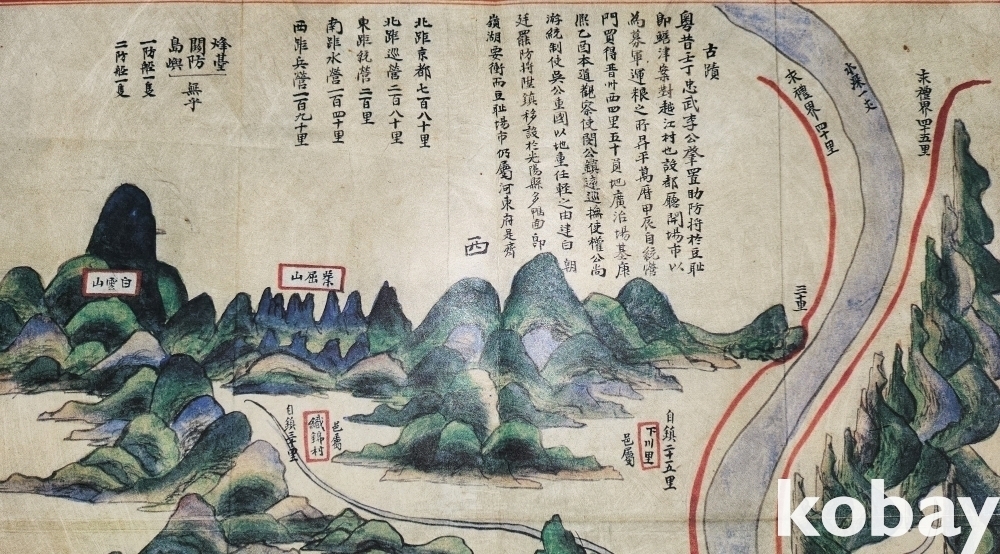 求禮界四十五里
求禮界四十里
古蹟
粵昔壬丁忠武李公肇置助防將於豆耻
卽蟾津案對越江村也設都廳開場市以
為募軍運粮之所昇平萬曆甲辰自統營
門買得晋州西四里五十負地廣治場基康
熙乙酉本道觀察使閔公鎮遠巡撫使權公尚
游統制使吳公重國以地重任輕之由建白 朝
廷罷防將陞鎮移設於光陽縣多鴨面卽
嶺湖要衝而豆耻場市仍屬河東府是齊
西
北距京都七百八十里
北距巡營二百八十里
東距統營二百里
南距水營一百四十里
西距兵營一百九十里
烽臺
關防
島嶼
無乎
一防船一隻
二防船一隻
山屈
山雲白
自鎮二十五里
下川里
邑屬
邑屬
織錦村
自鎮二十里
kobay